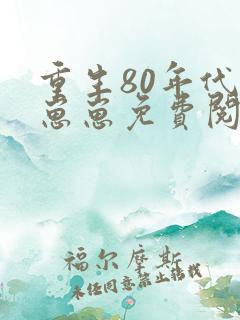 重生80年代
崽崽免费阅
福尔摩斯
未经同意禁止转载